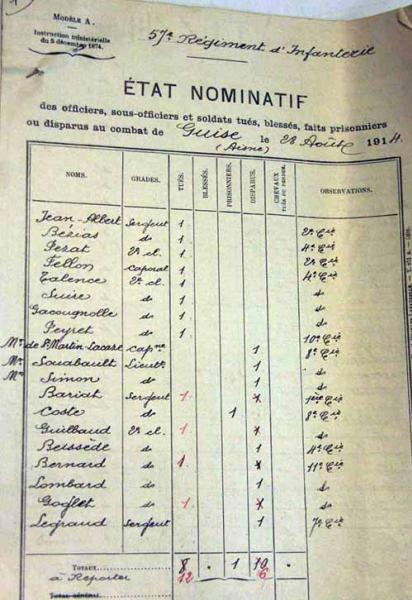 MODÈLE A.
Instruction ministérielle
du 5 décembre 1874.
57e Régiment d'Infanterie
ÉTAT NOMINATIF
des officiers, sous-officiers et soldats tués, blessés, faits prisonniers
ou disparus au combat de Guise le 28 Août 1914
(Aisne)
NOMS. GRADES. TUÉS. BLESSÉS. PRISONNIERS. DISPARUS. CHEVAUX OBSERVATIONS.
Jean-Albert Sergent 1
Bézias do 1 2e Cie
Pezat 2e cl. 1 4e Cie
Fellon Caporal 1 2e Cie
Talence 2e cl. 1 4e Cie
Suire do 1 do
Gacougnolle do 1 do
Peyret do 1 10e Cie
Mr de St Martin-Lacaze Capne 1 8e Cie
Mr Souabault Lieutt 1 do
Mr Simon do 1 do
Bariat Sergent 1 x 1ère Cie
Coste do 1 8e Cie
Guilbaud 2e cl. 1 x do
Beissède do 1 4e Cie
Bernard do 1 x 11e Cie
Lombard do 1 do
Goglet do 1 x do
Legraud Sergent 1 7e Cie
TOTAUX 8 . 1 10 .
à Reporter 12 6
TOTAL GÉNÉRAL